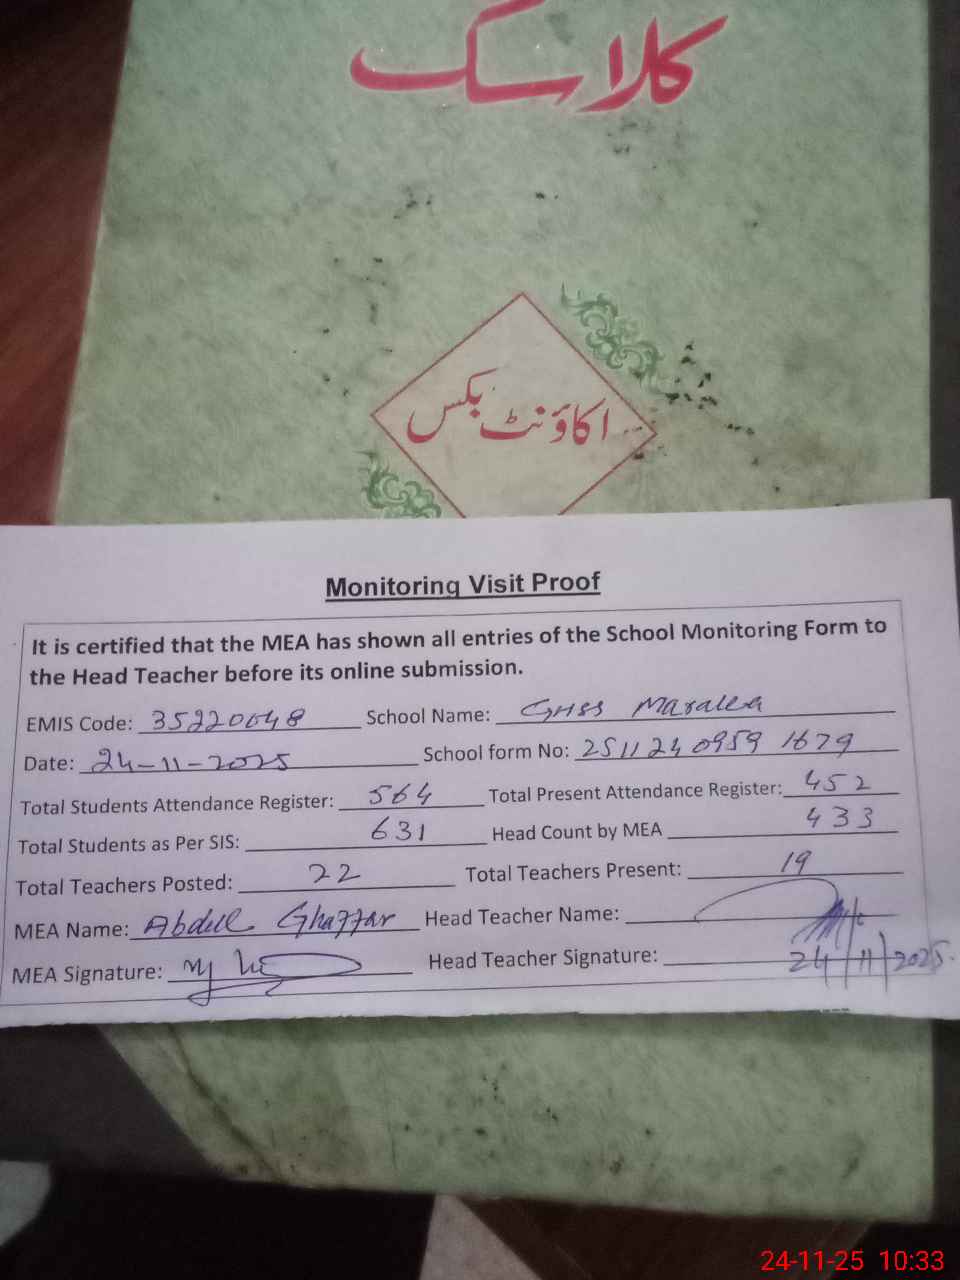 کلاسک
اکاؤنٹ بکس
Monitoring Visit Proof
It is certified that the MEA has shown all entries of the School Monitoring Form to
the Head Teacher before its online submission.
EMIS Code: 35220048 School Name: GHSS Maralla
Date: 24-11-2025 School form No: 2511240959 1679
Total Students Attendance Register: 564 Total Present Attendance Register: 452
Total Students as Per SIS: 631 Head Count by MEA 433
Total Teachers Posted: 22 Total Teachers Present: 19
MEA Name: Abdul Ghaffar Head Teacher Name:
MEA Signature: Head Teacher Signature: 24/11/2025.
24-11-25 10:33